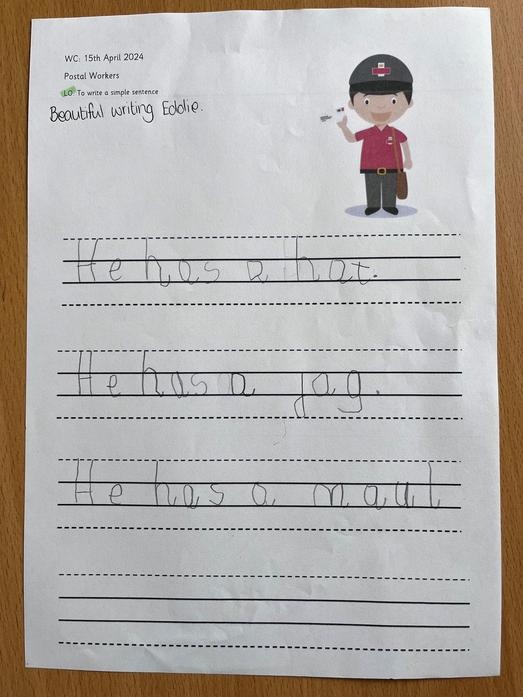 WC: 15th April 2024
Postal Workers
LO: To write a simple sentence
Beautiful writing Eddie.
He has a hat.
He has a jag.
He has a maul